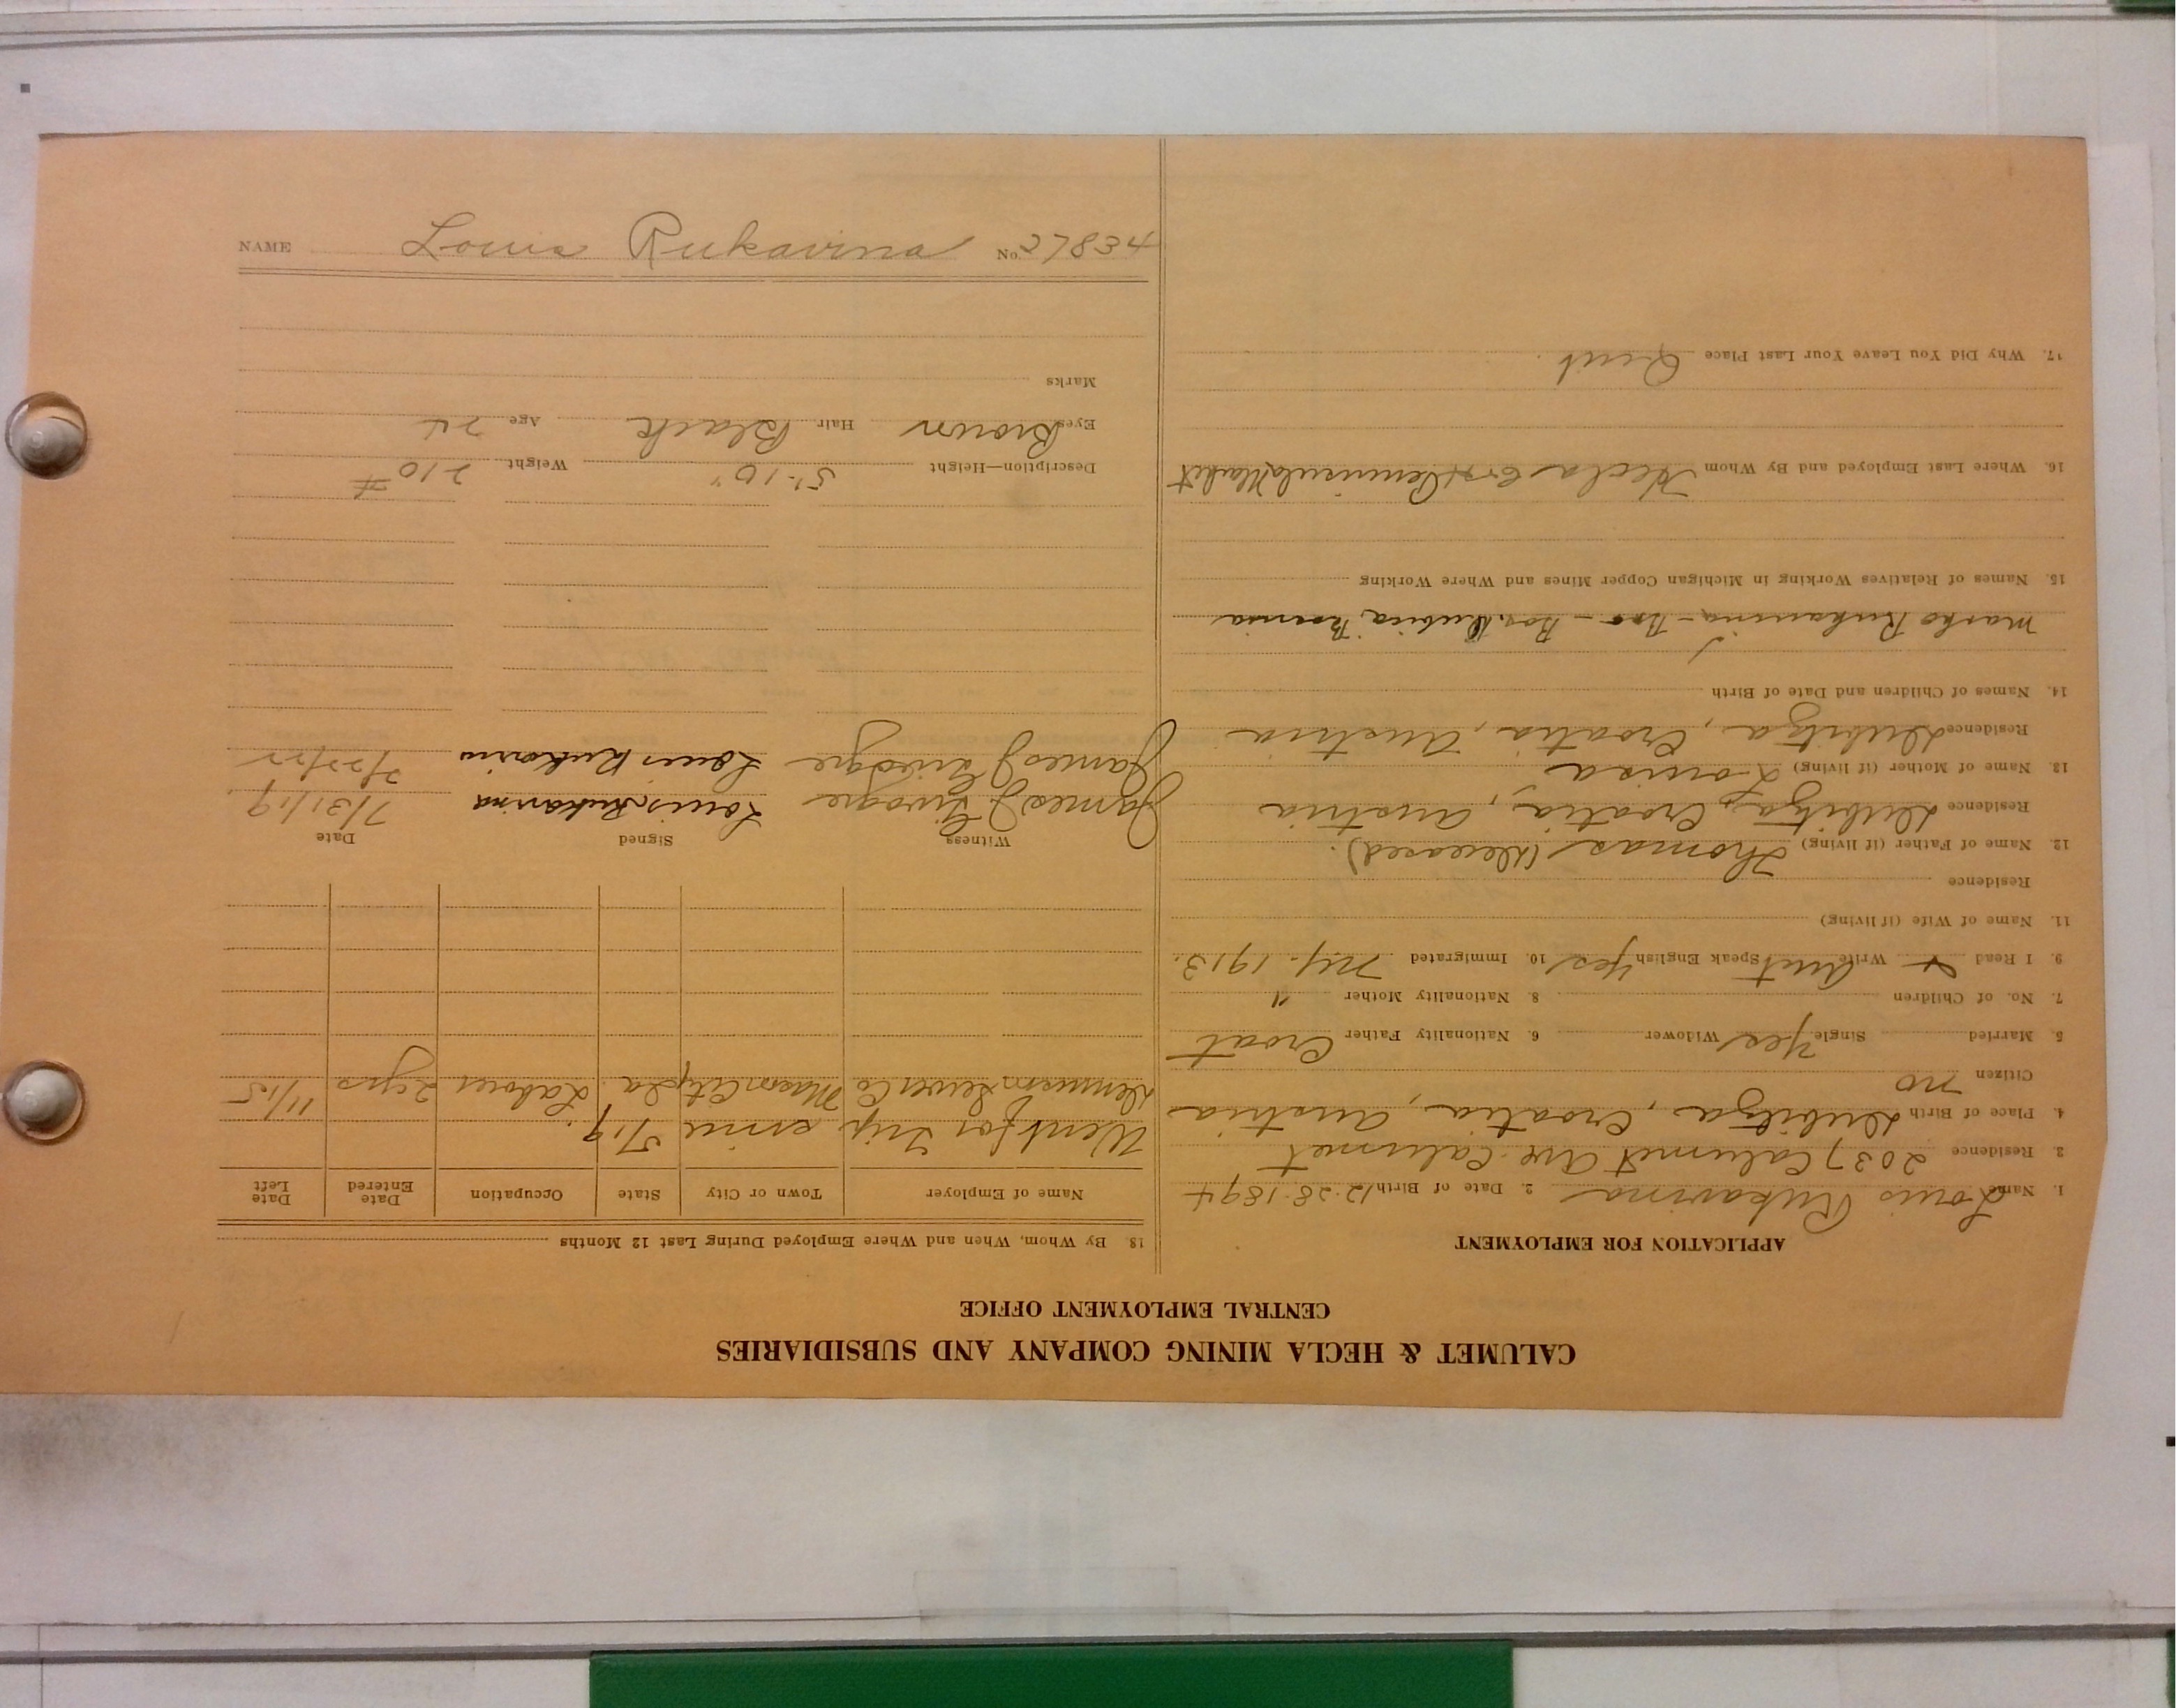 CALUMET & HECLA MINING COMPANY AND SUBSIDIARIES
CENTRAL EMPLOYMENT OFFICE
APPLICATION FOR EMPLOYMENT
1. Name Louis Rukavina 2. Date of Birth 12-28-1894
3. Residence 2037 Calumet Ave Calumet
4. Place of Birth Dubitza, Croatia, Austria
Citizen no
5. Married Single Yes Widower 6. Nationality Father Croat
7. No. of Children 8. Nationality Mother "
9. I Read & Write Aust Speak English Yes 10. Immigrated 1913.
11. Name of Wife (if living)
Residence
12. Name of Father (if living) Thomas (Deceased).
Residence Dubitza, Croatia, Austria
13. Name of Mother (if living) Louisa
Residence Dubitza, Croatia, Austria
14. Names of Children and Date of Birth
Marko Rukavina - Bro - Bos. Dubica, Bosnia
15. Names of Relatives Working in Michigan Copper Mines and Where Working
16. Where Last Employed and By Whom Hecla Peninsula Market
17. Why Did You Leave Your Last Place Quit.
18. By Whom, When and Where Employed During Last 12 Months
Name of Employer Town or City State Occupation Date Entered Date Left
Went for Trip since 5/19.
Sewer Co Mason City Ia. Laborer 2 yrs 11/15
Witness Signed Date
James J Louis Rukavina 7/31/19.
James J Louis Rukavina 2/22/22
Description—Height 5'-10" Weight 210 #
Eyes Brown Hair Black Age 24
Marks
NAME Louis Rukavina No. 27834